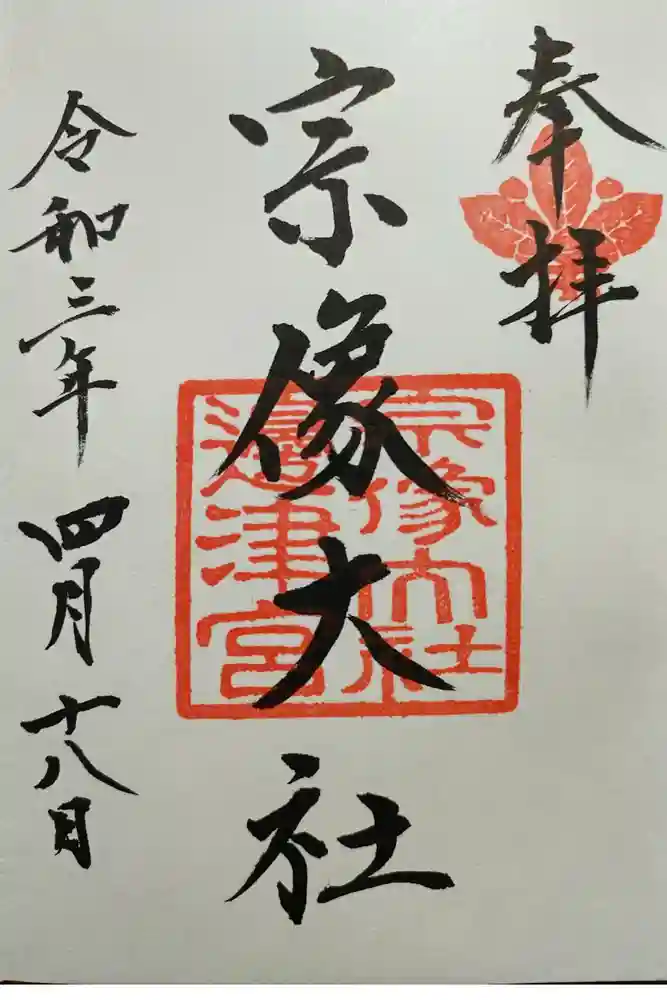 奉拝
宗像大社
宗像大社
邊津宮
令和三年四月十八日